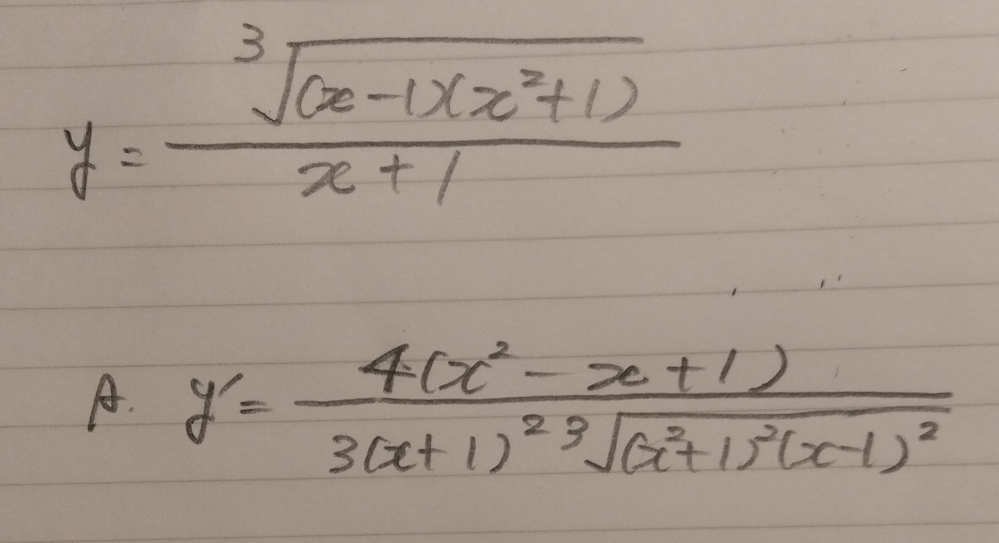 y = ∛((x-1)(x²+1)) / (x+1)
A. y' = 4(x² - x + 1) / (3(x+1)² ∛((x²+1)²(x-1)²))